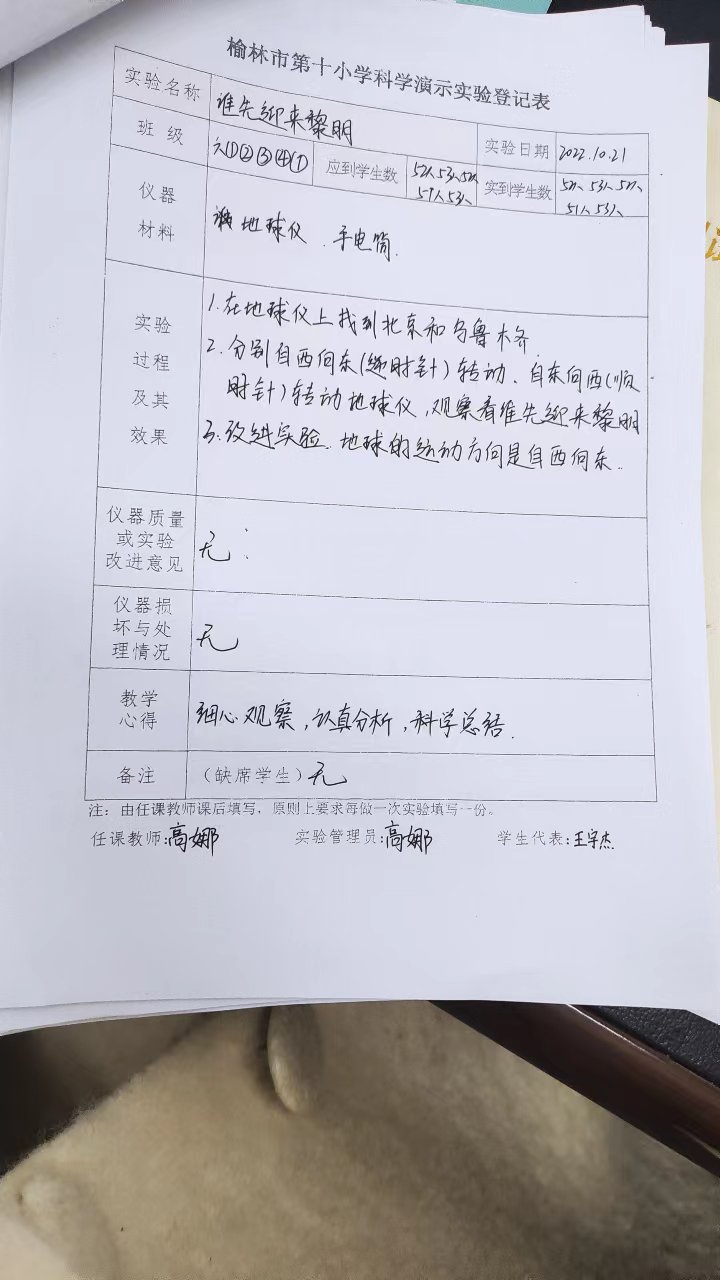 榆林市第十小学科学演示实验登记表
实验名称 谁先迎来黎明
班级 六①②③④ 应到学生数 52、53、52、 51、53、 实验日期 2022.10.21
实到学生数 52、53、52、 51、53、
仪器
材料
地球仪、手电筒.
实验
过程
及其
效果
1.在地球仪上找到北京和乌鲁木齐.
2.分别自西向东(逆时针)转动、自东向西(顺
时针)转动地球仪,观察看谁先迎来黎明
3.改进实验.地球的运动方向是自西向东.
仪器质量
或实验
改进意见
无
仪器损
坏与处
理情况
无
教学
心得
细心观察,认真分析,科学总结.
备注 (缺席学生)无
注:由任课教师课后填写,原则上要求每做一次实验填写一份。
任课教师:高娜 实验管理员:高娜 学生代表:王宇杰